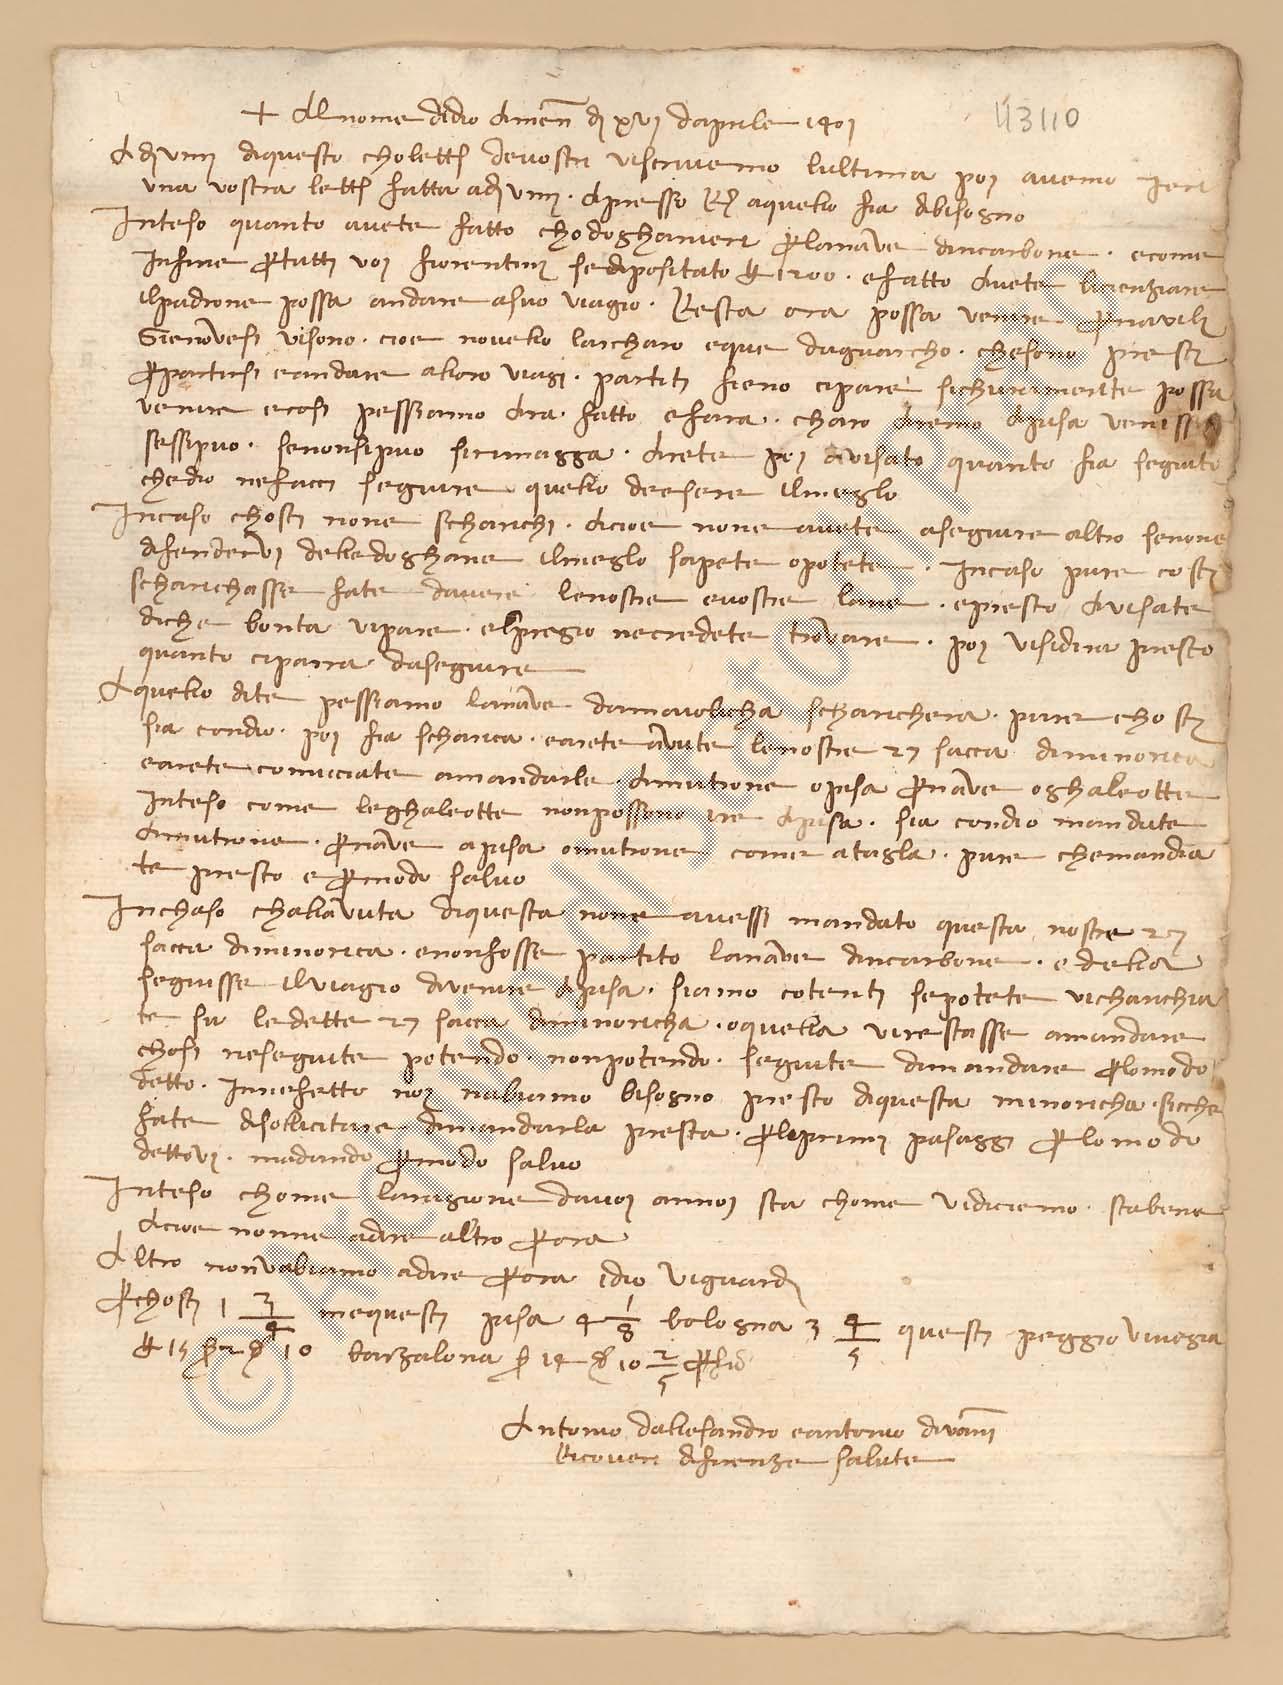 + Al nome di dio amen dì xvi d'aprile 1401
113110
A dì viiii di questo cho lett. de vostri vi scrivemo l'ultima poi avemo ieri
una vostra lett. fatta a dì viiii. apresso R. a quello fia di bisogno
Inteso quanto avete fatto cho doghanieri per la nave d'incarbone. e come
infine per tutti voi fiorentini se dipositato 1200. e fatto avete licenziare
il padrone possa andare a suo viagio. Resta ora possa venire per navili
Gienovesi vi sono. cioe novello larcharo e que daguarcho. che sono presti
per partirsi e andare a loro viagi. partiti sieno ci pare sichuramente possa
venire e cosi pessiamo ara fatto e fara. charo aremo a pisa venisse
se ssi puo. se non si puo si rimagga. arete poi avisato quanto fia seguito
che dio ne facci seguire quello de esere il meglo
In caso chosti none scharichi. acioe none avete a seguire altro senone
difendervi dalle doghane il meglo sapete o potete. In caso pure costi
scharichasse fate d'avere le nostre e vostre lane. e presto avisate
di che bonta vi pare. e 'l pregio ne credete trovare. poi vi si dira presto
quanto ci parra da seguire
A quello dite pessiamo la nave da maiolicha scharichera. pure chosti
sia con dio. poi fia scharica. e arete avute le nostre 27 sacca di minorica
e arete cominciate a mandarle. a mutrone o pisa per nave o ghaleotte
Inteso come le ghaleotte non possono ire a pisa. sia con dio mandate
a mutrone. per nave a pisa o mutrone come a tagla. pure che mandia
te presto e per modo salvo
In chaso ch'alla auta di questa none avessi mandato questa nostre 27
sacca di minorica. e non fosse partito la nave d'incarbone. e della
seguisse il viagio di venire a pisa. siamo cotenti se potete vi charichia
te su le dette 27 sacca di minoricha. o quella vi restasse a mandare
chosi ne seguite potendo. non potendo. seguite di mandare per lo modo
detto. In nefetto noi n'abiamo bisogno presto di questa minoricha. sicche
fate di sollicitare di mandarla presta. per le primi pasaggi per lo modo
dettovi. madando per modo salvo
Inteso chome la ragione da voi a nnoi sta chome vi diciemo. sta bene
acioe nonne a dire altro per ora
Altro non v'abiamo a dire per ora idio vi guardi
Per chosti 1 3/4 in e questi pisa 4 1/8 bologna 3 4/5 questi peggio vinegia
15 s. 2 d. 10 barzalona s. 14 d. 10 2/5 per fio
Antonio d'allesandro e antonio di vanni
Ricoveri di firenze salute